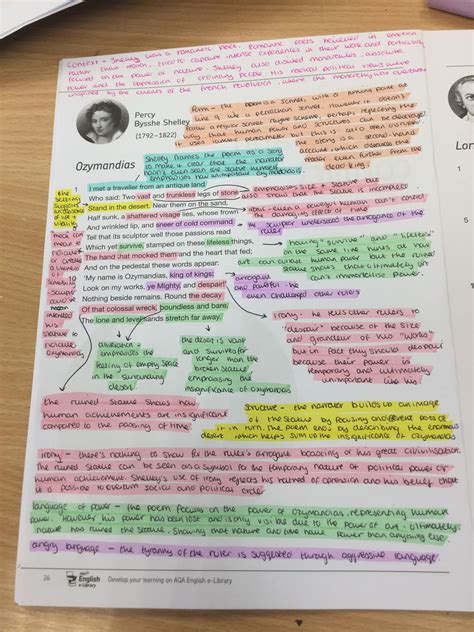 context - Shelley was a romantic poet. Romantic poets believed in emotion
rather than reason, tried to capture intense experiences in their work and particularly
focused on the power of nature. Shelley also disliked monarchies, absolute
power and the oppression of ordinary people. His radical political views were
inspired by the events of the French revolution, where the monarchy was overthrown
Percy
Bysshe Shelley
(1792–1822)
form - the poem is a sonnet, with a turning point at
line 9 like a petrarchan sonnet. However it doesn't
follow a regular sonnet rhyme scheme, perhaps reflecting the
way that human power and structures can be destroyed.
it uses iambic pentameter but this is also often disrupted
the story is a second-hand
account, which distances the
reader even further from the
dead king.
Shelley frames the poem as a story
to make it clear that the narrator
hasn't even seen the statue himself
emphasises how unimportant
Ozymandias
I met a traveller from an antique land
Who said: Two vast and trunkless legs of stone
Stand in the desert. Near them on the sand,
Half sunk, a shattered visage lies, whose frown
And wrinkled lip, and sneer of cold command
Tell that its sculptor well those passions read
Which yet survive, stamped on these lifeless things,
The hand that mocked them and the heart that fed;
And on the pedestal these words appear:
'My name is Ozymandias, king of kings:
Look on my works, ye Mighty, and despair!'
Nothing beside remains. Round the decay
Of that colossal wreck, boundless and bare,
The lone and level sands stretch far away.
1
5
10
the
setting
suggests
an absence
of life +
vitality
emphasises size + stature but
also shows that the statue is incomplete
ironic - even a powerful human can't control
the damaging effects of time
the sculptor understood the arrogance of the
ruler
having "survive" and "lifeless"
on the same line hints at how
art can outlast human power but the ruined
statue shows that ultimately art
can't immortalise power.
mock can
mean to
ridicule
or create
a likeness
of
sculptor
intended
his
statue to
ridicule
Ozymandias
arrogant
and powerful - he
even challenged other rulers
irony - he tells other rulers to
"despair" because of the size
and grandeur of his "works"
but in fact they should despair
because their power is
temporary and ultimately
unimportant like his
alliteration
emphasises the
feeling of empty space
in the surrounding
desert
the desert is vast
and survives far
longer than the
broken statue,
emphasising the
insignificance of Ozymandias
the ruined statue shows how
human achievements are insignificant
compared to the passing of time.
structure - the narrator builds up an image
of the statue by focusing on different parts of
it in turn. The poem ends by describing the enormous
desert which helps sum up the insignificance of Ozymandias
irony - there's nothing to show for the ruler's arrogant boasting of his great civilisation.
The ruined statue can be seen as a symbol for the temporary nature of political power or
human achievement. Shelley's use of irony reflects his hatred of oppression and his belief that it
is possible to overturn social and political order.
language of power - the poem focuses on the power of Ozymandias, representing human
power. However his power has been lost and is only visible due to the power of art. Ultimately
nature has ruined the statue, showing that nature and time have power than anything else.
angry language - the tyranny of the ruler is suggested through aggressive language.
26
English
e-Library
Develop your learning on AQA English e-Library
Lor
1
5